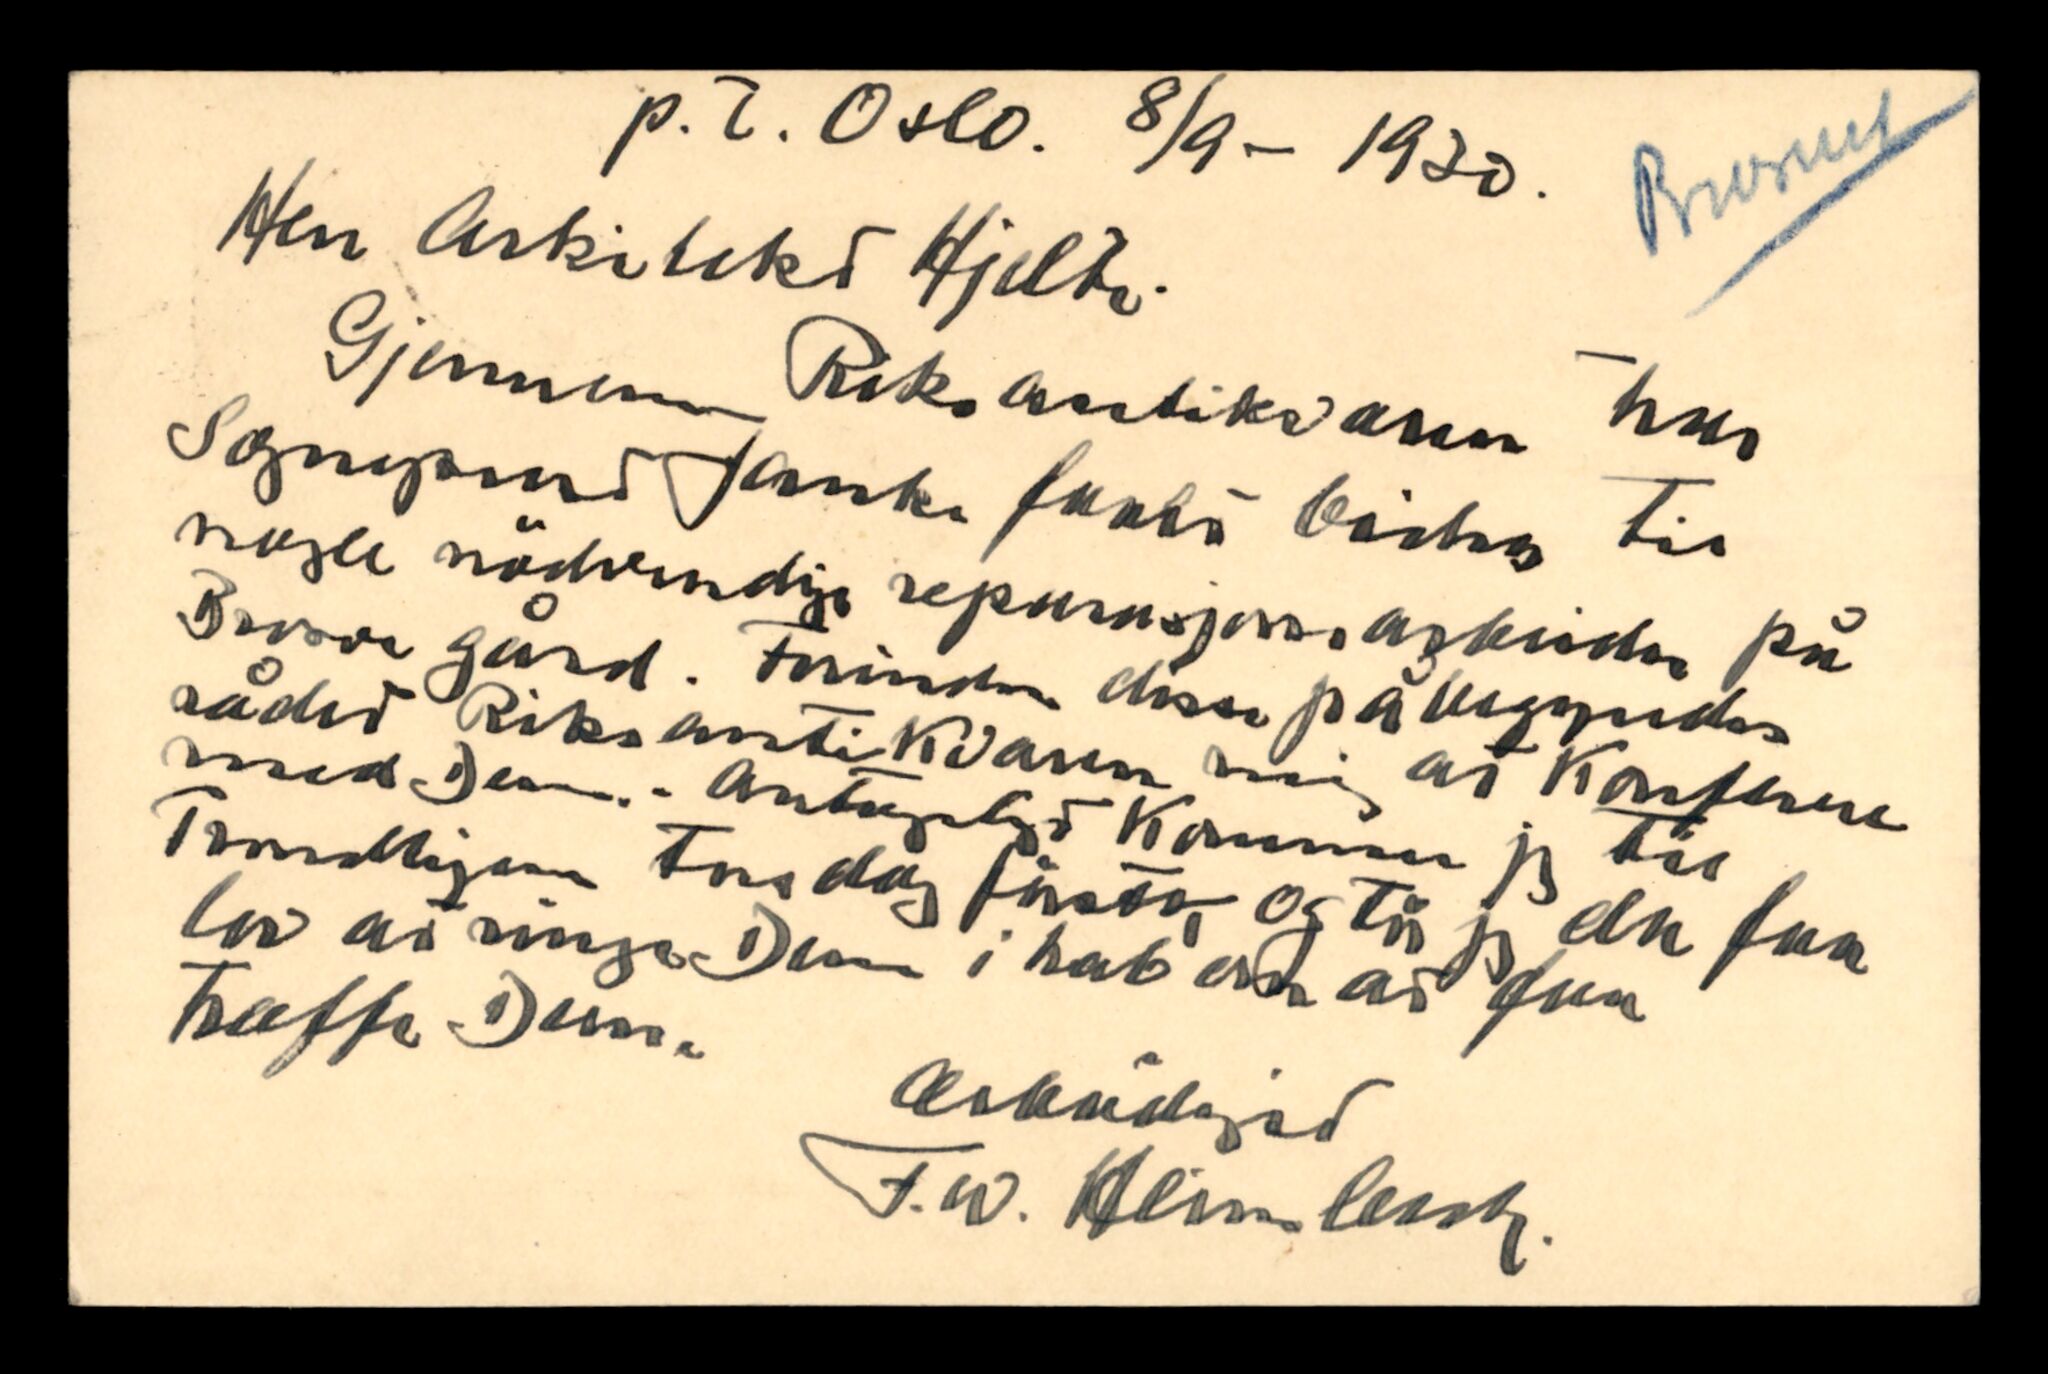 p.t. Oslo. 8/9 – 1930.
Herr Arkitekt Hjelte.
Gjennem Riksantikvaren har
Sogneprest Janke faatt bidrag til
nogle nödvendige reparasjonsarbeider på
gård. Forinden disse påbegyndes
rådet Riksantikvaren mig at konferere
med Dem. - Antageligt kommer jeg til
Trondhjem Torsdag förstk. og tör jeg da faa
lov at ringe Dem i haab om at faa
træffe Dem.
Ærbödigst
F.W.